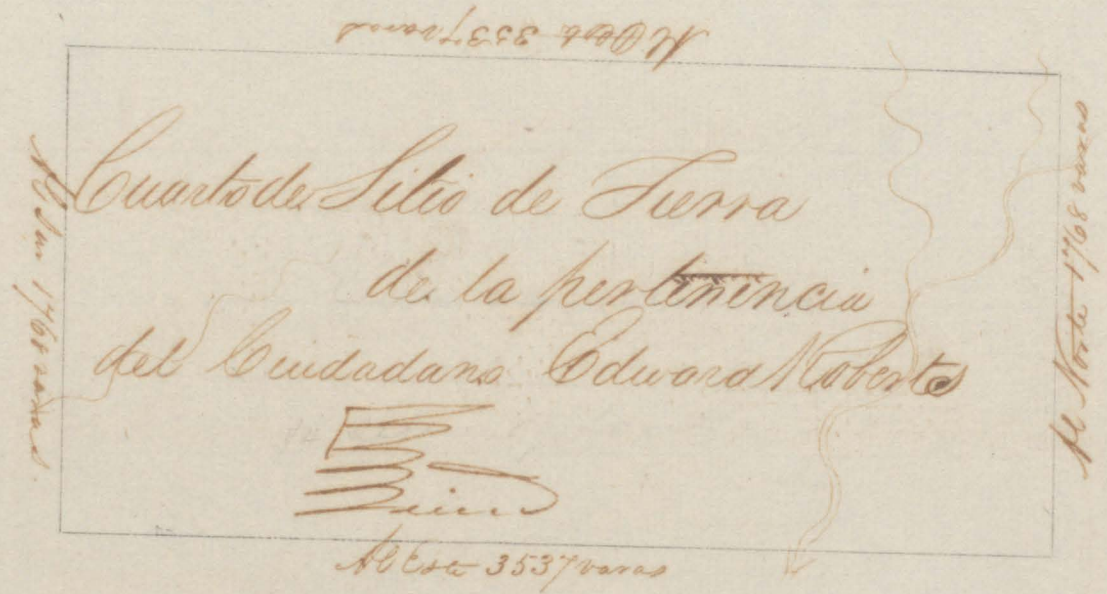 Al Oeste 3537 varas
Al Sur 1768 varas
Cuarto de Sitio de Tierra
de la pertinincia
del Ciudadano Edward Roberts
Al Norte 1768 varas
Al Este 3537 varas